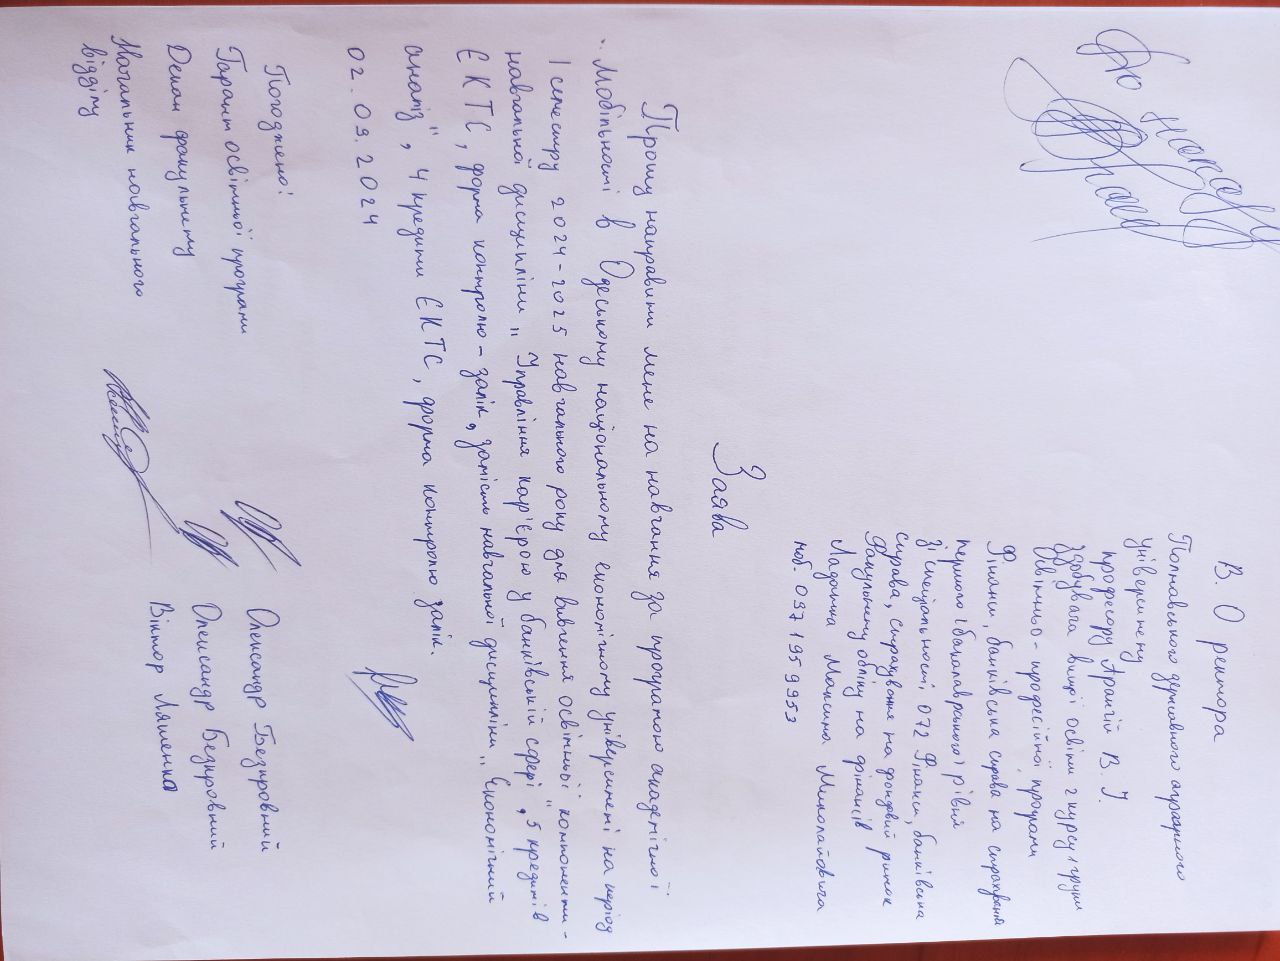 До наказу
В. О ректора
Полтавського державного аграрного
університету
професору Аранчій В. І.
здобувача вищої освіти 2 курсу 1 групи
Освітньо-професійної програми
Фінанси, банківська справа та страхування
першого (бакалаврського) рівня
зі спеціальності 072 Фінанси, банківська
справа, страхування та фондовий ринок
Факультету обліку та фінансів
Ладочка Максима Миколайовича
моб. 0971959953
Заява
Прошу направити мене на навчання за програмою академічної
мобільності в Одеському національному економічному університеті на період
1 семестру 2024-2025 навчального року для вивчення освітньої компоненти -
навчальної дисципліни „Управління кар'єрою у банківській сфері", 5 кредитів
ЄКТС, форма контролю - залік, замість навчальної дисципліни „Економічний
аналіз", 4 кредити ЄКТС, форма контролю залік.
02.09.2024
Погоджено:
Гарант освітньої програми Олександр Безкровний
Декан факультету Олександр Безкровний
Начальник навчального
відділу Віктор Ляшенко